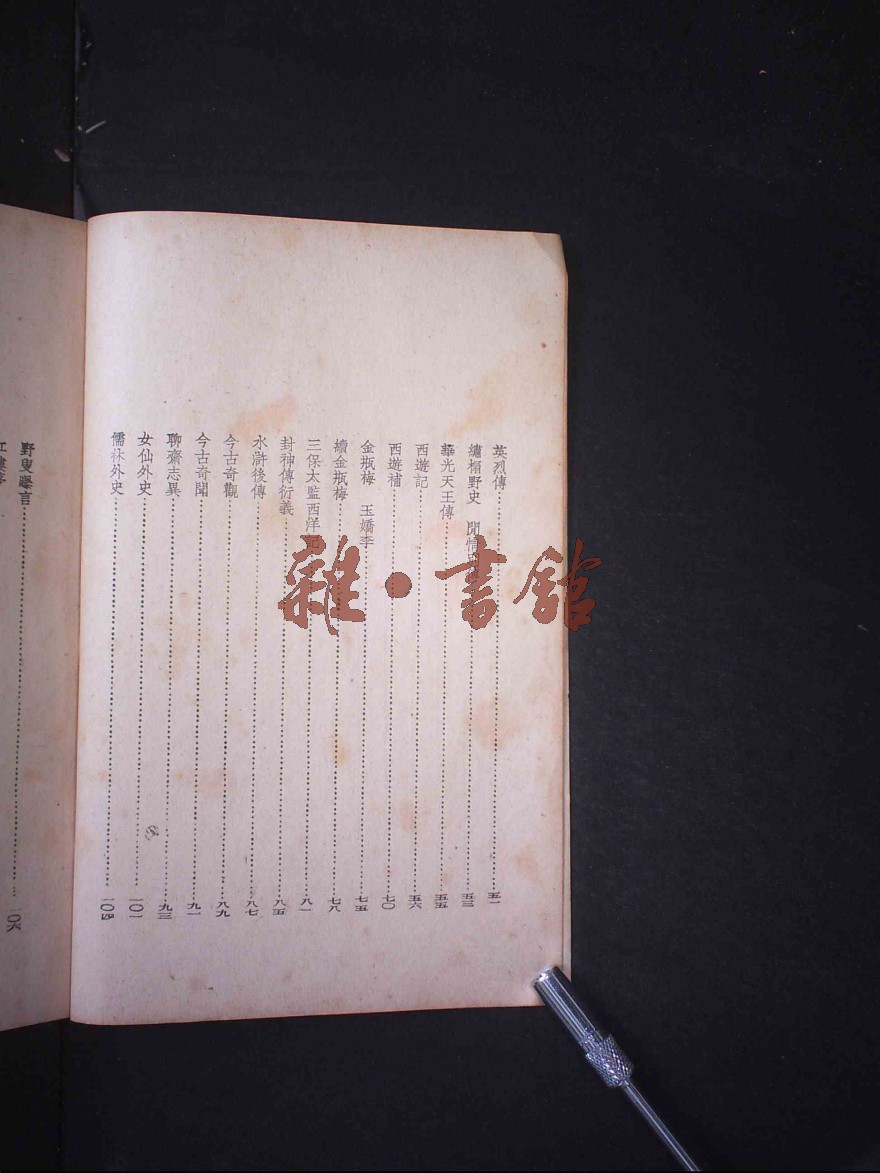 英烈傳……五一
繡榻野史 閒情……五三
華光天王傳……五五
西遊記……五六
西遊補……七〇
金瓶梅 玉嬌李……七五
續金瓶梅……七八
三保太監西洋記……八一
封神傳衍義……八五
水滸後傳……八七
今古奇觀……八九
今古奇聞……九一
聊齋志異……九三
女仙外史……一〇一
儒林外史……一〇四
野叟曝言……一〇六
雜·書館